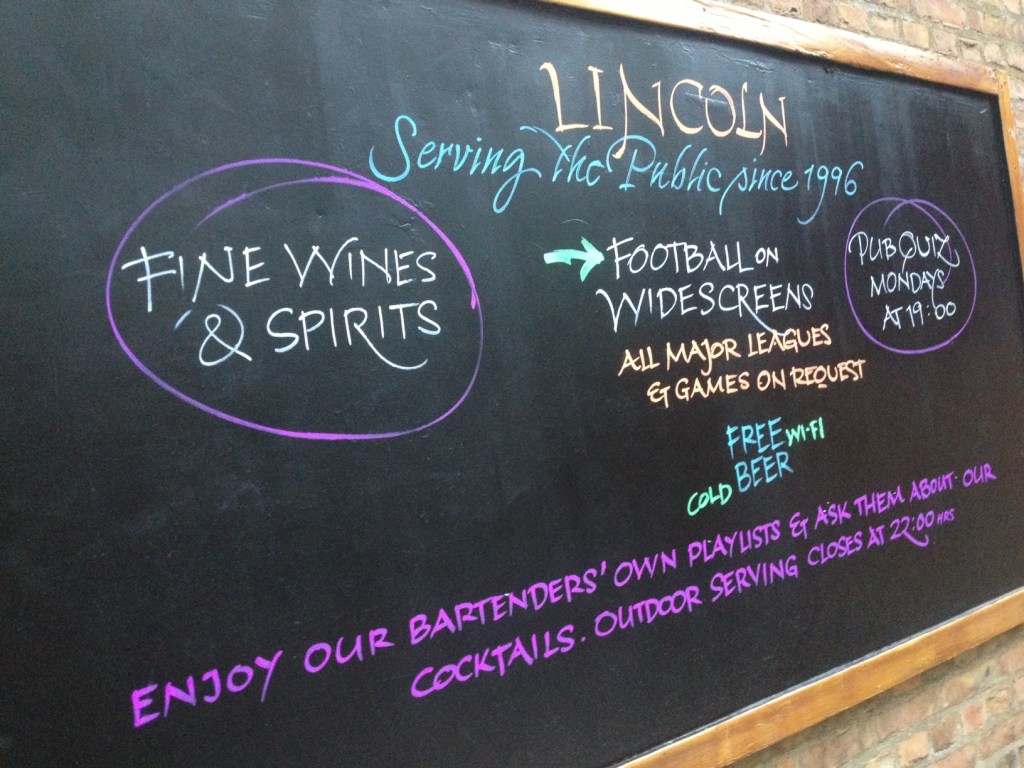 LINCOLN
Serving the Public since 1996
FINE WINES
& SPIRITS
FOOTBALL ON
WIDESCREENS
ALL MAJOR LEAGUES
& GAMES ON REQUEST
PUB QUIZ
MONDAYS
AT 19:00
FREE WI-FI
COLD BEER
ENJOY OUR BARTENDERS' OWN PLAYLISTS & ASK THEM ABOUT OUR
COCKTAILS. OUTDOOR SERVING CLOSES AT 22:00 HRS